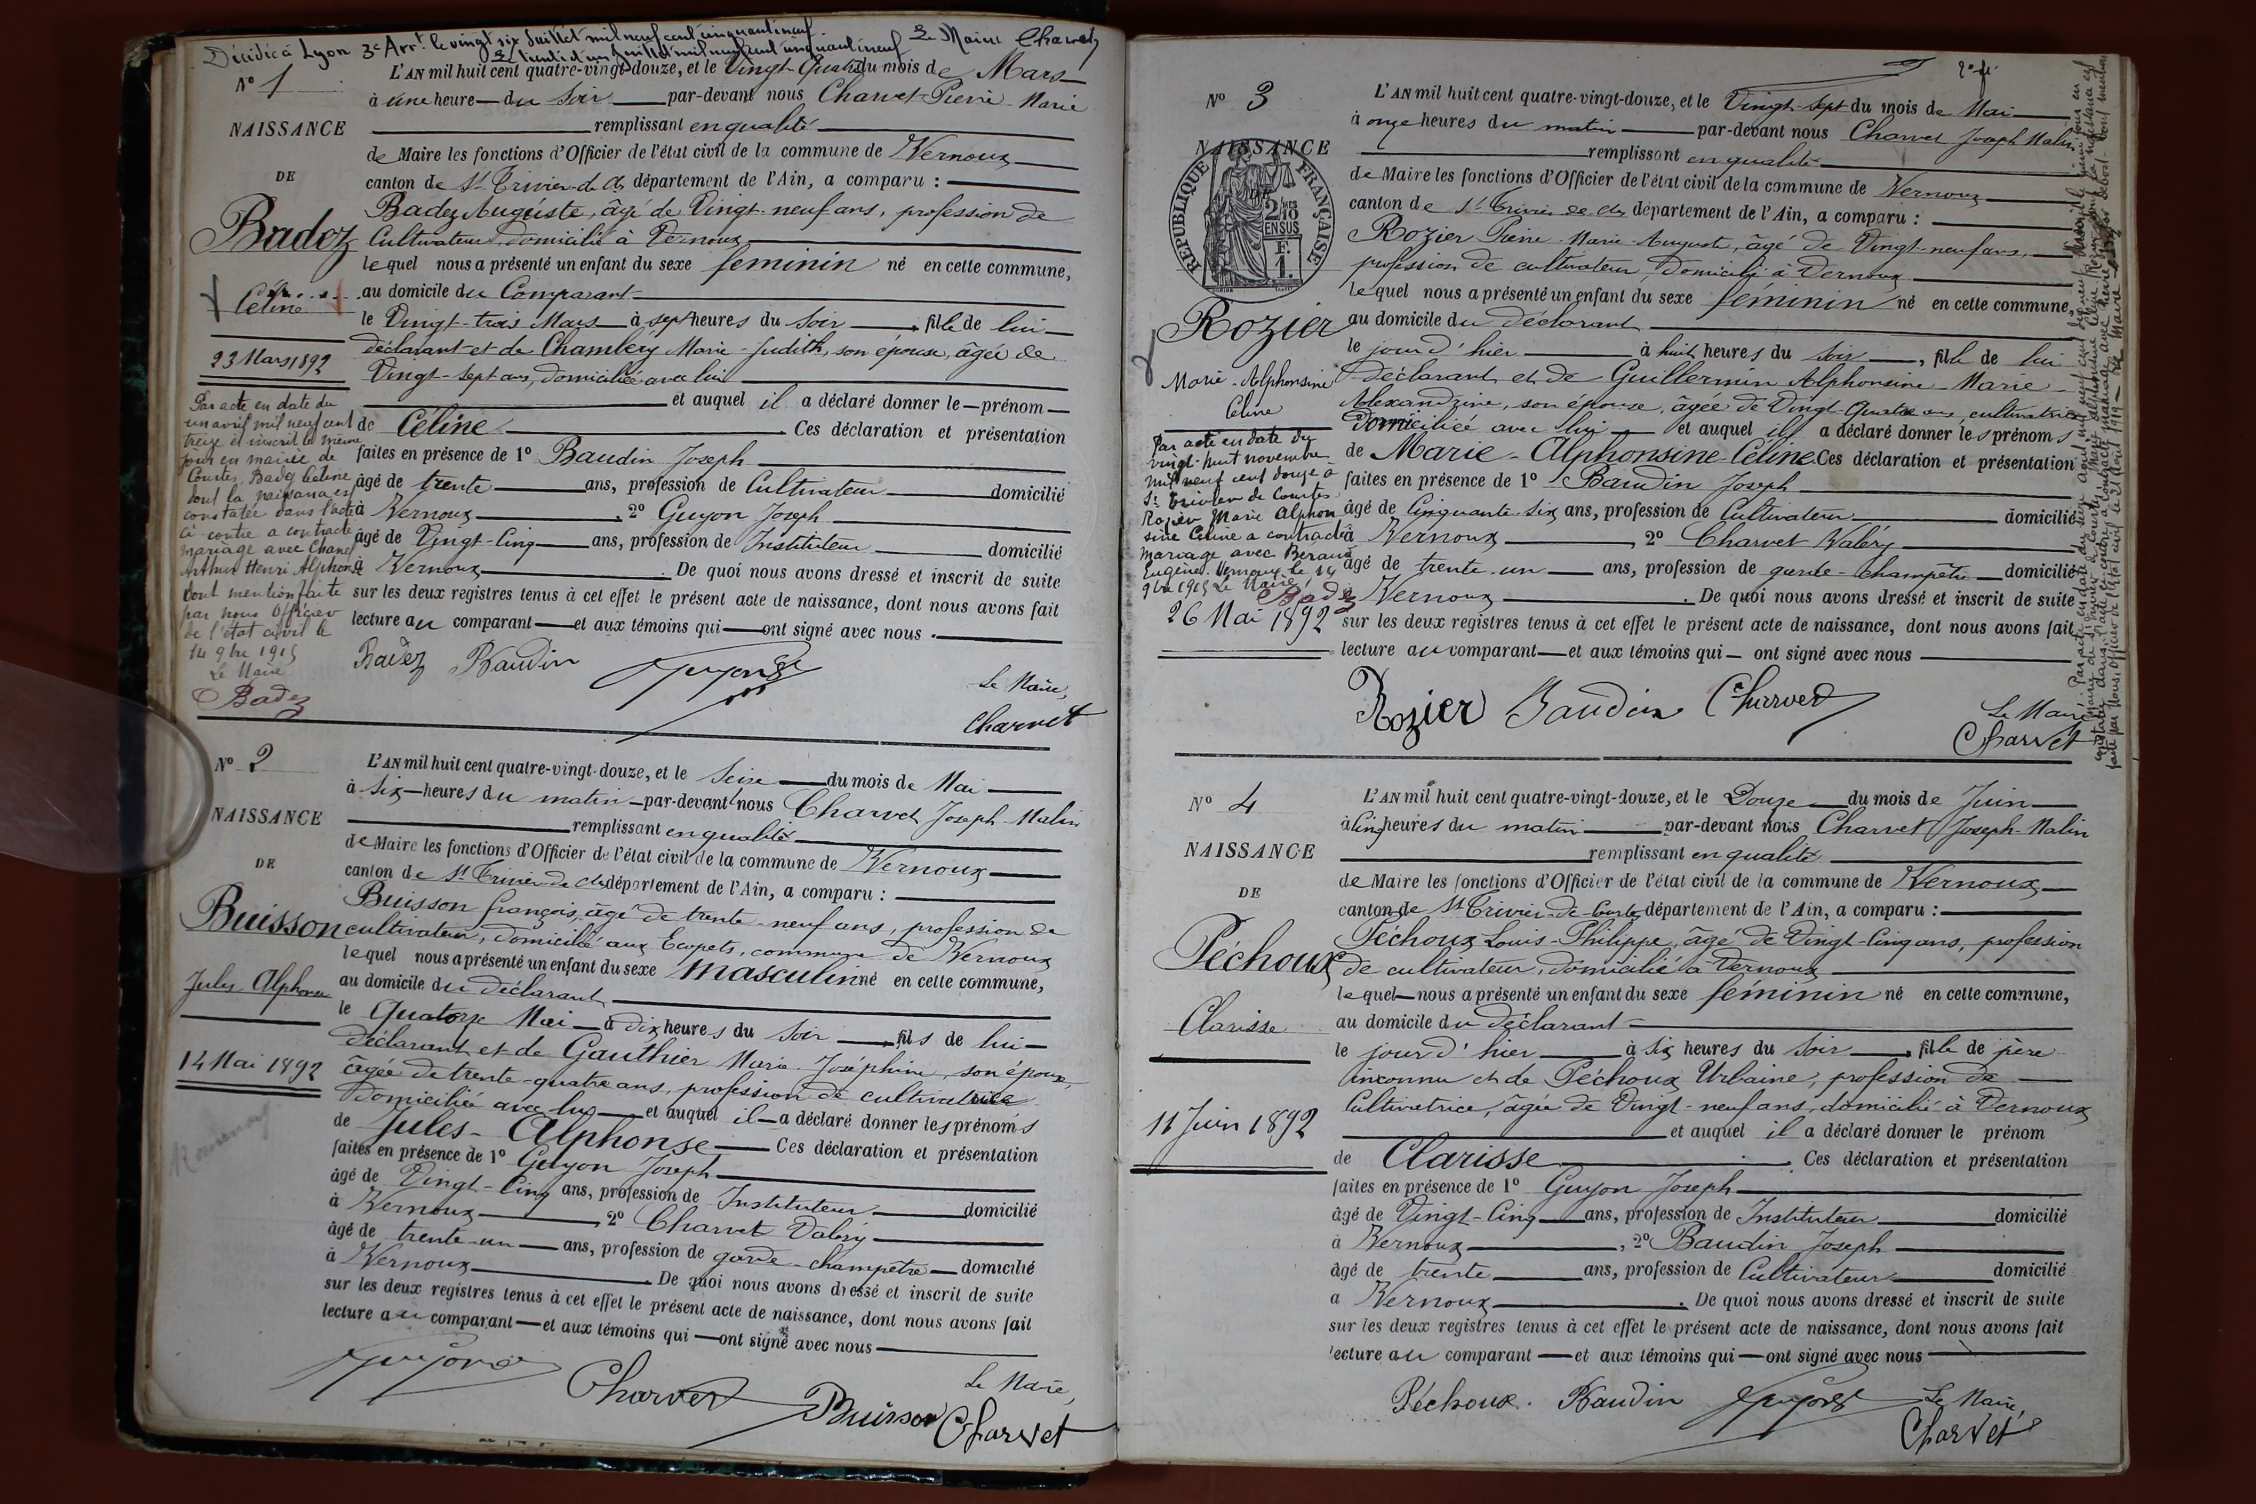 Décédée à Lyon 3e Arrt. le vingt six Juillet mil neuf cent cinquante neuf
Le Maire Charvet
No 1
NAISSANCE
DE
Badoz
Céline
23 Mars 1892
L'AN mil huit cent quatre-vingt-douze, et le Vingt-Quatre du mois de Mars
à une heure du Soir par-devant nous Charvet Pierre Marie
remplissant en qualité
de Maire les fonctions d'Officier de l'état civil de la commune de Vernoux
canton de St Trivier-de-Cs département de l'Ain, a comparu :
Badez Auguste, âgé de Vingt-neuf ans, profession de
Cultivateur, domicilié à Vernoux
lequel nous a présenté un enfant du sexe féminin né en cette commune,
au domicile du Comparant
le Vingt-trois Mars à sept heures du Soir, fille de lui
déclarant et de Chambéry Marie-Judith, son épouse, âgée de
Vingt-sept ans, domiciliée avec lui
et auquel il a déclaré donner le prénom
de Céline Ces déclaration et présentation
faites en présence de 1o Baudin Joseph
âgé de trente ans, profession de Cultivateur domicilié
à Vernoux, 2o Guyon Joseph
âgé de Vingt-Cinq ans, profession de Instituteur domicilié
à Vernoux. De quoi nous avons dressé et inscrit de suite
sur les deux registres tenus à cet effet le présent acte de naissance, dont nous avons fait
lecture au comparant et aux témoins qui ont signé avec nous.
Par acte en date du
un avril mil neuf cent
treize et inscrit le même
jour en mairie de
Courtes, Badez Céline
dont la naissance est
constatée dans l'acte
ci-contre a contracté
mariage avec Chanel
Arthur Henri Alphonse
Dont mention faite
par nous Officier
de l'état civil le
14 9bre 1915
Le Maire
Badez
Badez Baudin Guyon
Le Maire,
Charvet
No 2
NAISSANCE
DE
Buisson
Jules Alphonse
14 Mai 1892
L'AN mil huit cent quatre-vingt-douze, et le Seize du mois de Mai
à six heures du matin par-devant nous Charvet Joseph-Malin
remplissant en qualité
de Maire les fonctions d'Officier de l'état civil de la commune de Vernoux
canton de St Trivier-de-Cs département de l'Ain, a comparu :
Buisson françois, âgé de trente-neuf ans, profession de
cultivateur, domicilié aux Ecopets, commune de Vernoux
lequel nous a présenté un enfant du sexe masculin né en cette commune,
au domicile du déclarant
le Quatorze Mai à dix heures du Soir, fils de lui
déclarant et de Gauthier Marie Joséphine, son épouse,
âgée de trente-quatre ans, profession de cultivatrice
domiciliée avec lui et auquel il a déclaré donner les prénoms
de Jules-Alphonse Ces déclaration et présentation
faites en présence de 1o Guyon Joseph
âgé de Vingt-Cinq ans, profession de Instituteur domicilié
à Vernoux, 2o Charvet Valéry
âgé de trente-un ans, profession de garde-champêtre domicilié
à Vernoux. De quoi nous avons dressé et inscrit de suite
sur les deux registres tenus à cet effet le présent acte de naissance, dont nous avons fait
lecture au comparant et aux témoins qui ont signé avec nous
Guyon Charvet Buisson
Le Maire,
Charvet
2e ft
No 3
NAISSANCE
DE
RÉPUBLIQUE FRANÇAISE
2/10
EN SUS
F.
1.
Rozier
Marie-Alphonsine
Céline
L'AN mil huit cent quatre-vingt-douze, et le Vingt-sept du mois de Mai
à onze heures du matin par-devant nous Charvet Joseph Malin
remplissant en qualité
de Maire les fonctions d'Officier de l'état civil de la commune de Vernoux
canton de St Trivier de Cs département de l'Ain, a comparu :
Rozier Pierre-Marie-Auguste, âgé de Vingt-neuf ans,
profession de cultivateur, domicilié à Vernoux
lequel nous a présenté un enfant du sexe féminin né en cette commune,
au domicile du déclarant
le jour d'hier à huit heures du Soir, fille de lui
déclarant et de Guillermin Alphonsine-Marie
Alexandrine, son épouse, âgée de Vingt-Quatre ans, cultivatrice
domiciliée avec lui et auquel il a déclaré donner les prénoms
de Marie-Alphonsine Céline Ces déclaration et présentation
faites en présence de 1o Baudin Joseph
âgé de Cinquante-six ans, profession de Cultivateur domicilié
à Vernoux, 2o Charvet Valéry
âgé de trente-un ans, profession de garde-champêtre domicilié
à Vernoux. De quoi nous avons dressé et inscrit de suite
sur les deux registres tenus à cet effet le présent acte de naissance, dont nous avons fait
lecture au comparant et aux témoins qui ont signé avec nous
Par acte en date du
vingt-huit novembre
mil neuf cent douze à
St Trivier de Courtes
Rozier Marie Alphon
sine Céline a contracté
mariage avec Beraud
Eugène. Vernoux le 14
9bre 1915 Le Maire
Badez
26 Mai 1892
Rozier Baudin Charvet
Le Maire
Charvet
No 4
NAISSANCE
DE
Péchoux
Clarisse
11 Juin 1892
L'AN mil huit cent quatre-vingt-douze, et le Douze du mois de Juin
à Cinq heures du matin par-devant nous Charvet Joseph-Malin
remplissant en qualité
de Maire les fonctions d'Officier de l'état civil de la commune de Vernoux
canton de St Trivier-de-Courtes département de l'Ain, a comparu :
Péchoux Louis-Philippe, âgé de Vingt-Cinq ans, profession
de cultivateur, domicilié à Vernoux
lequel nous a présenté un enfant du sexe féminin né en cette commune,
au domicile du déclarant
le jour d'hier à six heures du Soir, fille de père
inconnu et de Péchoux Urbaine, profession de
Cultivatrice, âgée de Vingt-neuf ans, domicilié à Vernoux
et auquel il a déclaré donner le prénom
de Clarisse. Ces déclaration et présentation
faites en présence de 1o Guyon Joseph
âgé de Vingt-Cinq ans, profession de Instituteur domicilié
à Vernoux, 2o Baudin Joseph
âgé de trente ans, profession de Cultivateur domicilié
à Vernoux. De quoi nous avons dressé et inscrit de suite
sur les deux registres tenus à cet effet le présent acte de naissance, dont nous avons fait
lecture au comparant et aux témoins qui ont signé avec nous
Péchoux. Baudin Guyon
Le Maire,
Charvet